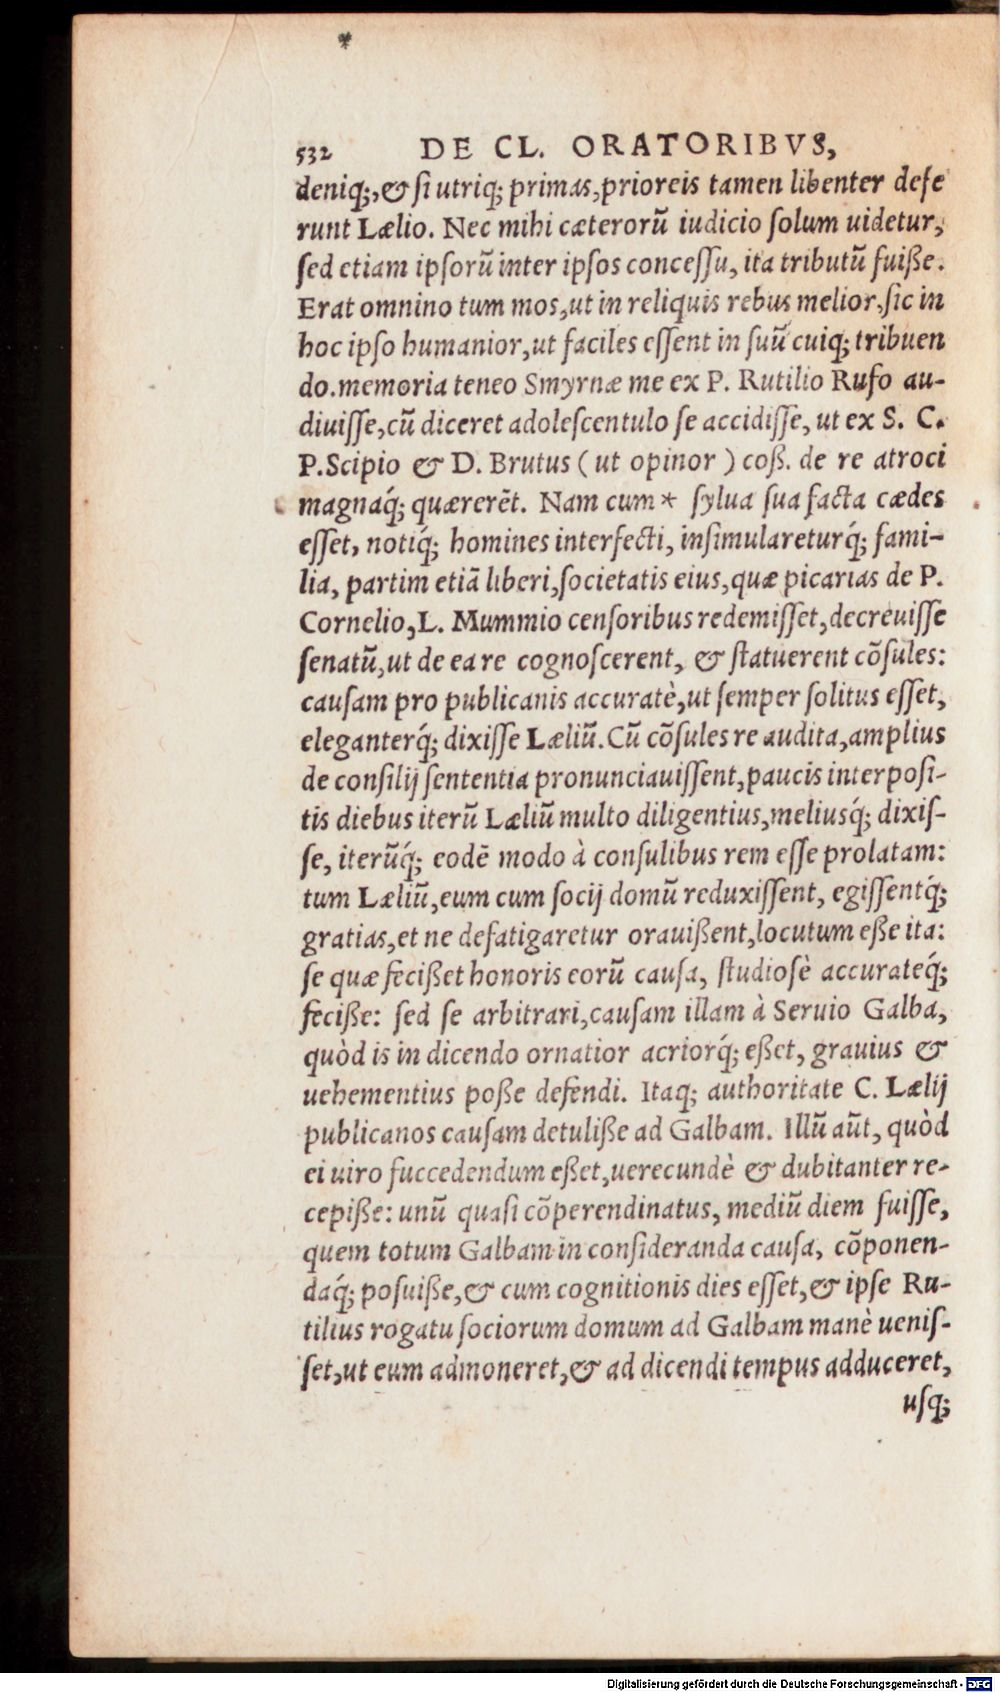 532 DE CL. ORATORIBVS,
deniq;,& ſi utriq; primas,prioreis tamen libenter defe
runt Lælio. Nec mihi cæterorũ iudicio ſolum uidetur,
ſed etiam ipſorũ inter ipſos conceſſu, ita tributũ fuiße.
Erat omnino tum mos,ut in reliquis rebus melior,ſic in
hoc ipſo humanior,ut faciles eſſent in ſuũ cuiq; tribuen
do.memoria teneo Smyrnæ me ex P. Rutilio Rufo au-
diuiſſe,cũ diceret adoleſcentulo ſe accidiſſe, ut ex S. C.
P.Scipio & D. Brutus ( ut opinor ) coß. de re atroci
magnaq́; quærerẽt. Nam cum * ſylua ſua facta cædes
eſſet, notiq́; homines interfecti, inſimulareturq́; fami-
lia, partim etiã liberi,ſocietatis eius,quæ picarias de P.
Cornelio,L. Mummio cenſoribus redemiſſet,decreuiſſe
ſenatũ,ut de ea re cognoſcerent, & ſtatuerent cõſules:
cauſam pro publicanis accuratè,ut ſemper ſolitus eſſet,
eleganterq́; dixiſſe Læliũ.Cũ cõſules re audita,amplius
de conſilij ſententia pronunciauiſſent,paucis interpoſi-
tis diebus iterũ Læliũ multo diligentius,meliusq́; dixiſ-
ſe, iterũq́; eodẽ modo à conſulibus rem eſſe prolatam:
tum Læliũ,eum cum ſocij domũ reduxiſſent, egiſſentq́;
gratias,et ne defatigaretur orauißent,locutum eße ita:
ſe quæ feciſſet honoris eorũ cauſa, ſtudioſè accurateq́;
feciße: ſed ſe arbitrari,cauſam illam à Seruio Galba,
quòd is in dicendo ornatior acriorq́; eßet, grauius &
uehementius poße defendi. Itaq; authoritate C. Lælij
publicanos cauſam detuliße ad Galbam. Illũ aũt, quòd
ei uiro ſuccedendum eßet,uerecundè & dubitanter re-
cepiße: unũ quaſi cõperendinatus, mediũ diem fuiſſe,
quem totum Galbam in conſideranda cauſa, cõponen-
daq́; poſuiße,& cum cognitionis dies eſſet,& ipſe Ru-
tilius rogatu ſociorum domum ad Galbam manè ueniſ-
ſet,ut eum admoneret,& ad dicendi tempus adduceret,
uſq;
Digitalisierung gefördert durch die Deutsche Forschungsgemeinschaft - DFG